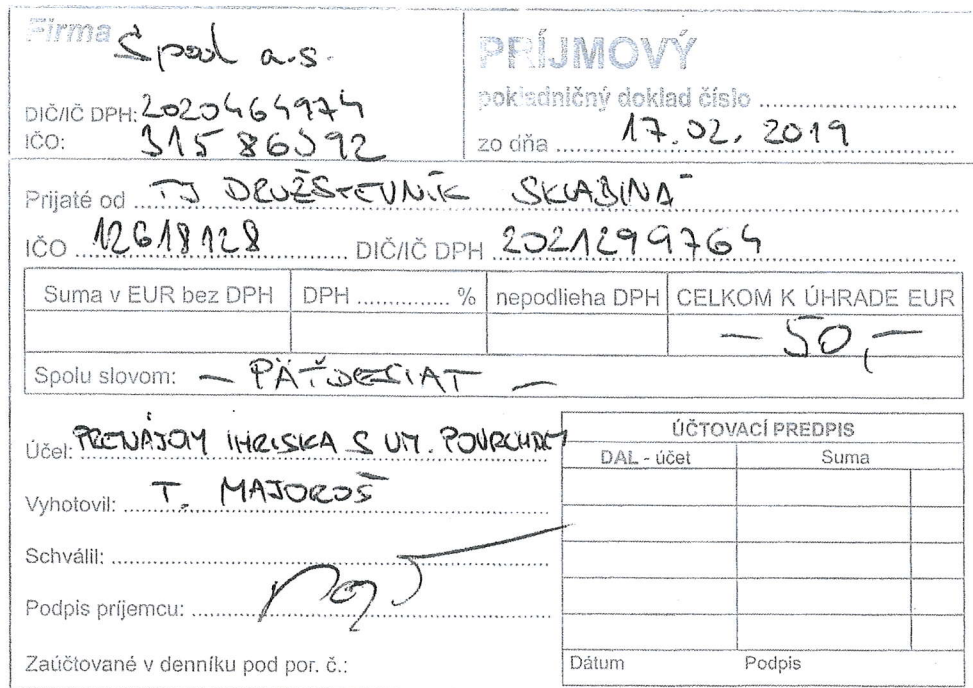 Firma Špod a.s.
DIČ/IČ DPH: 2020464974
IČO: 31586392
PRÍJMOVÝ
pokladničný doklad číslo
zo dňa 17.02.2019
Prijaté od TJ DRUŽSTEVNÍK SKLABINÁ
IČO 12618128 DIČ/IČ DPH 2021299764
Suma v EUR bez DPH DPH % nepodlieha DPH CELKOM K ÚHRADE EUR
– 50,–
Spolu slovom: – PÄŤDESIAT –
Účel: PRENÁJOM IHRISKA S UM. POVRCHOM
Vyhotovil: T. MAJOROŠ
Schválil:
Podpis príjemcu:
Zaúčtované v denníku pod por. č.:
ÚČTOVACÍ PREDPIS
DAL - účet Suma
Dátum Podpis